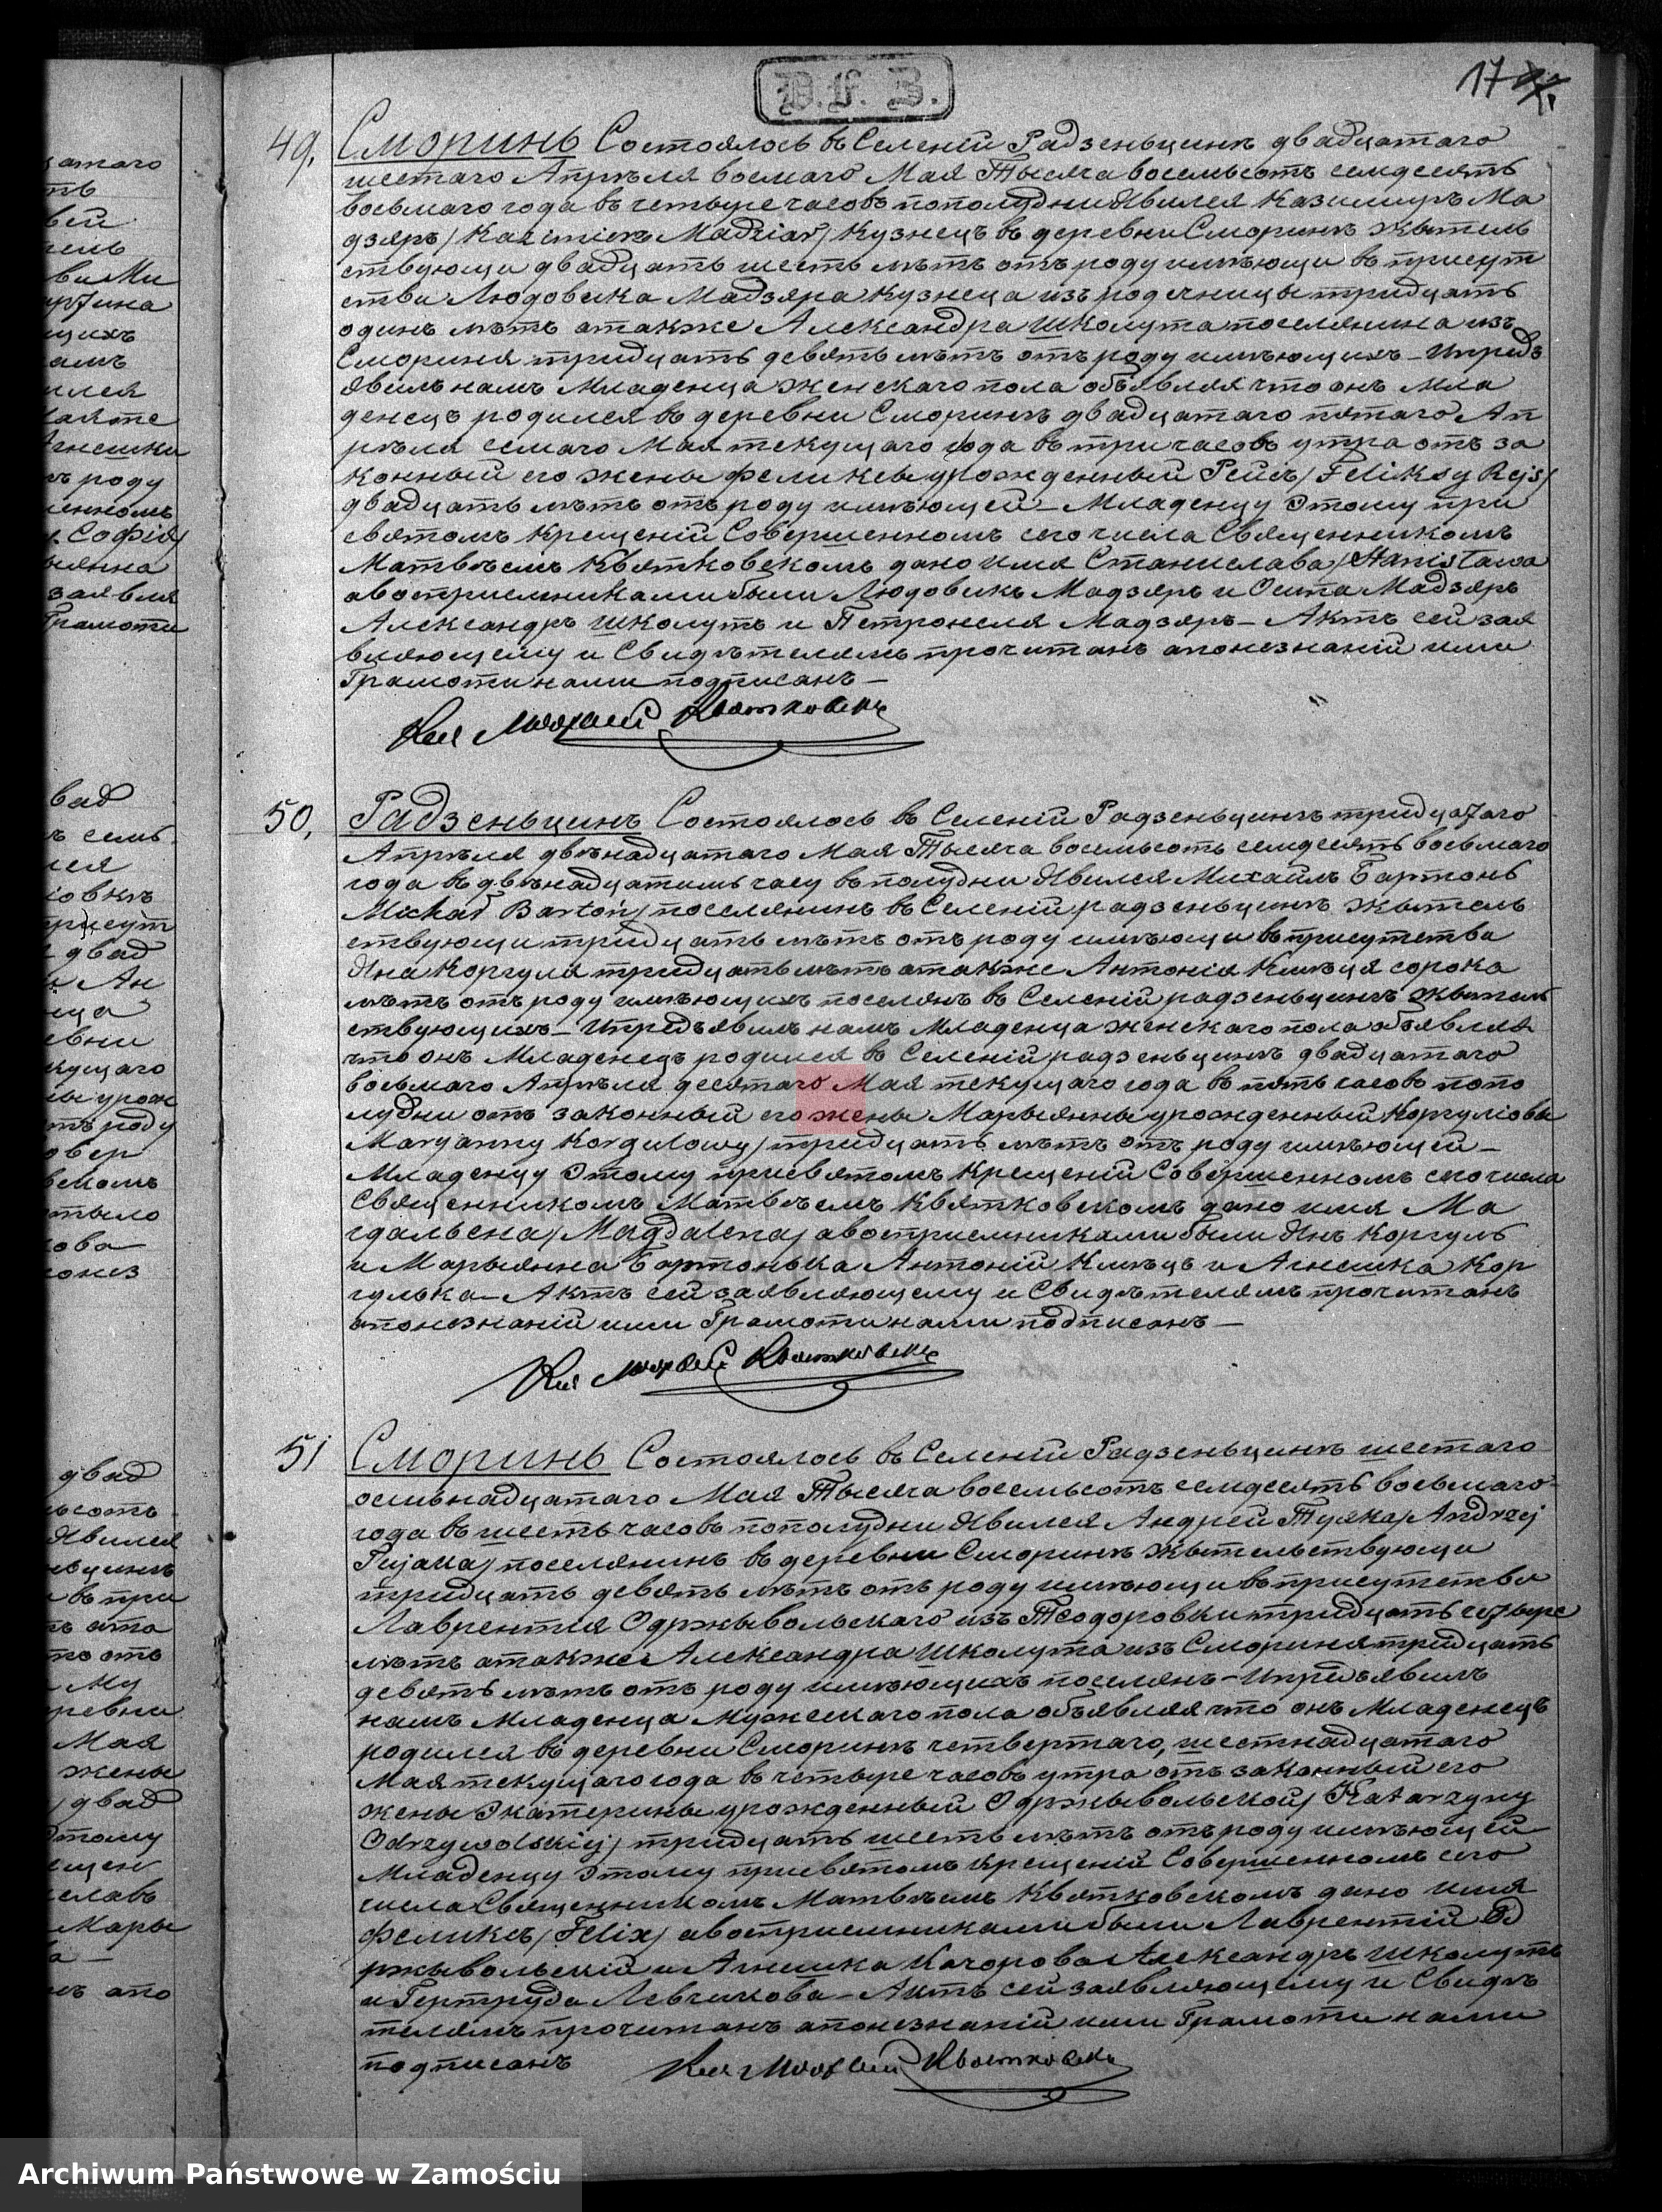 D. f. Z.
17
49. Сморинь Состоялось въ Селеній Радзеньцинѣ двадцатаго
шестаго Апрѣля восмаго Мая Тысяча восемьсотъ семдесятъ
восьмаго года въ четыре часовъ пополудни Явился Казимиръ Ма
дзяръ /Kazimierz Madziar/ Кузнецъ въ деревни Сморинѣ жытель
ствующи двадцать шесть лѣтъ отъ роду имѣющи въ присут
ствии Людовика Мадзяра Кузнеца изъ тридцать
одинъ лѣтъ атакже Александра Школута поселянина изъ
Смориня тридцать девять лѣтъ отъ роду имѣющихъ – Ипредъ
явилъ намъ Младенца женскаго пола объявляя что онъ мла
денецъ родился въ деревни Сморинѣ двадцатаго пятаго Ап
рѣля семаго Мая текущаго года въ три часовъ утра отъ за
конный его жены Феликсы урожденный Рейсъ /Feliksy Rejs/
двадцать лѣтъ отъ роду имѣющей – Младенцу Этому при
святомъ крещеній Совершенномъ сего числа Священникомъ
Матвѣемъ Квятковскомъ дано имя Станислава /Stanisława
авосприемниками были Людовикъ Мадзяръ и Мадзяръ
Александръ Школутъ и Петронеля Мадзяръ – Актъ сей зая
вляющему и Свидѣтелямъ прочитанъ апонезнаній ими
Грамоти нами подписанъ –
Ксн Матвѣй Квятковски
50. Радзеньцинъ Состоялось въ Селеній Радзеньцинѣ тридцатаго
Апрѣля двѣнадцатаго Мая Тысяча восемьсотъ семдесятъ восьмаго
года въ двѣнадцатымъ часу въ полудни Явился Михаилъ Бартонь
Michał Bartoń/ поселянинъ въ Селеній радзеньцинѣ жытель
ствующи тридцать лѣтъ отъ роду имѣющи въ присутстви
Яна Коргуля тридцать лѣтъ атакже Антонія Кмѣця сорока
лѣтъ отъ роду имѣющихъ поселянъ въ Селеній радзеньцинѣ жытель
ствующихъ – Ипредъявилъ намъ Младенца женскаго пола объявляя
что онъ Младенецъ родился въ Селеній радзеньцинѣ двадцатаго
восьмаго Апрѣля десятаго Мая текущаго года въ пять часовъ попо
лудни отъ законный его жены Марьянны урожденный Коргуловы
Maryanny Korgulowy/ тридцать лѣтъ отъ роду имѣющей –
Младенцу Этому присвятомъ Крещеній Совершенномъ сего числа
Священникомъ Матвѣемъ Квятковскомъ дано имя Ма
гдальена /Magdalena/ авосприемниками были Янъ Коргуль
и Марьянна Бартонька Антоній Кмѣць и Агнешка Кор
гулька – Актъ сей заявляющему и Свидѣтелямъ прочитанъ
апонезнаній ими Грамоти нами подписанъ –
Ксн Матвѣй Квятковски
51 Сморинь Состоялось въ Селеній Радзеньцинѣ шестаго
осьмнадцатаго Мая Тысяча восемьсотъ семдесятъ восьмаго
года въ шесть часовъ пополудни Явился Андрей Туяка /Andrzej
Tujaka/ поселянинъ въ деревни Сморинѣ жытельствующи
тридцать девять лѣтъ отъ роду имѣющи въ присутстви
Лаврентія Одржывольскаго изъ Теодоровки тридцать четыре
лѣтъ атакже Александра Школута изъ Смориня тридцать
девять лѣтъ отъ роду имѣющихъ поселянъ – Ипредъявилъ
намъ Младенца Мужескаго пола объявляя что онъ Младенецъ
родился въ деревни Сморинѣ четвертаго, шестнадцатаго
Мая текущаго года въ четыре часовъ утра отъ законный его
жены Экатерины урожденный Одржывольской /Katarzyny
Odrzywolskiej/ тридцать шесть лѣтъ отъ роду имѣющей
Младенцу Этому присвятомъ Крещеній Совершенномъ сего
числа Священникомъ Матвѣемъ Квятковскомъ дано имя
Феликсъ /Felix/ авосприемниками были Лаврентій Од
ржывольскій и Агнешка Качорова Александръ Школутъ
и Гертруда Левчикова – Актъ сей заявляющему и Свидѣ
телямъ прочитанъ апонезнаній ими Грамоти нами
подписанъ Ксн Матвѣй Квятковски
Archiwum Państwowe w Zamościu